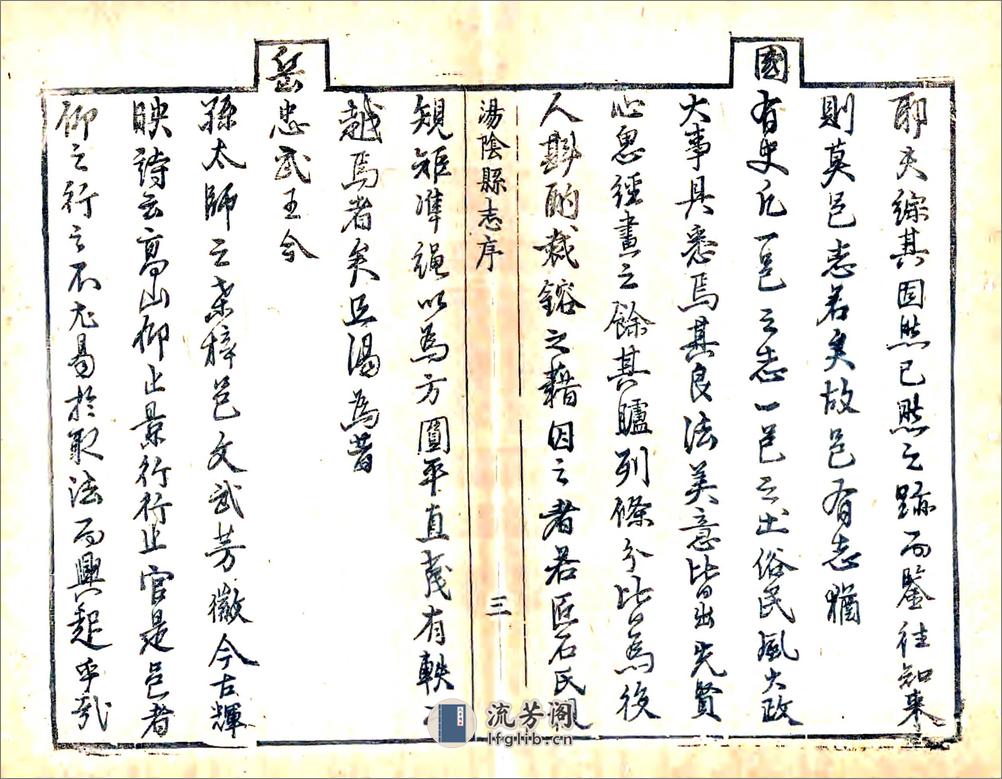 耶夫綜其固然已然之跡而鑒往知來
則莫邑志若矣故邑有志猶
國有史凡一邑之志一邑之土俗民風大政
大事具悉焉其良法美意皆出先賢
心思經畫之餘其臚列條分皆為後
人斟酌裁鎔之藉因之者若匠石氏
湯陰縣志序
三
規矩準繩以為方圓平直蔑有軼
越焉者矣且湯為昔
岳忠武王今
孫太師之桑梓邑文武芳徽今古輝
映詩云高山仰止景行行止官是邑者
仰之行之不尤易於取法而興起乎哉
流芳阁
lfglib.cn